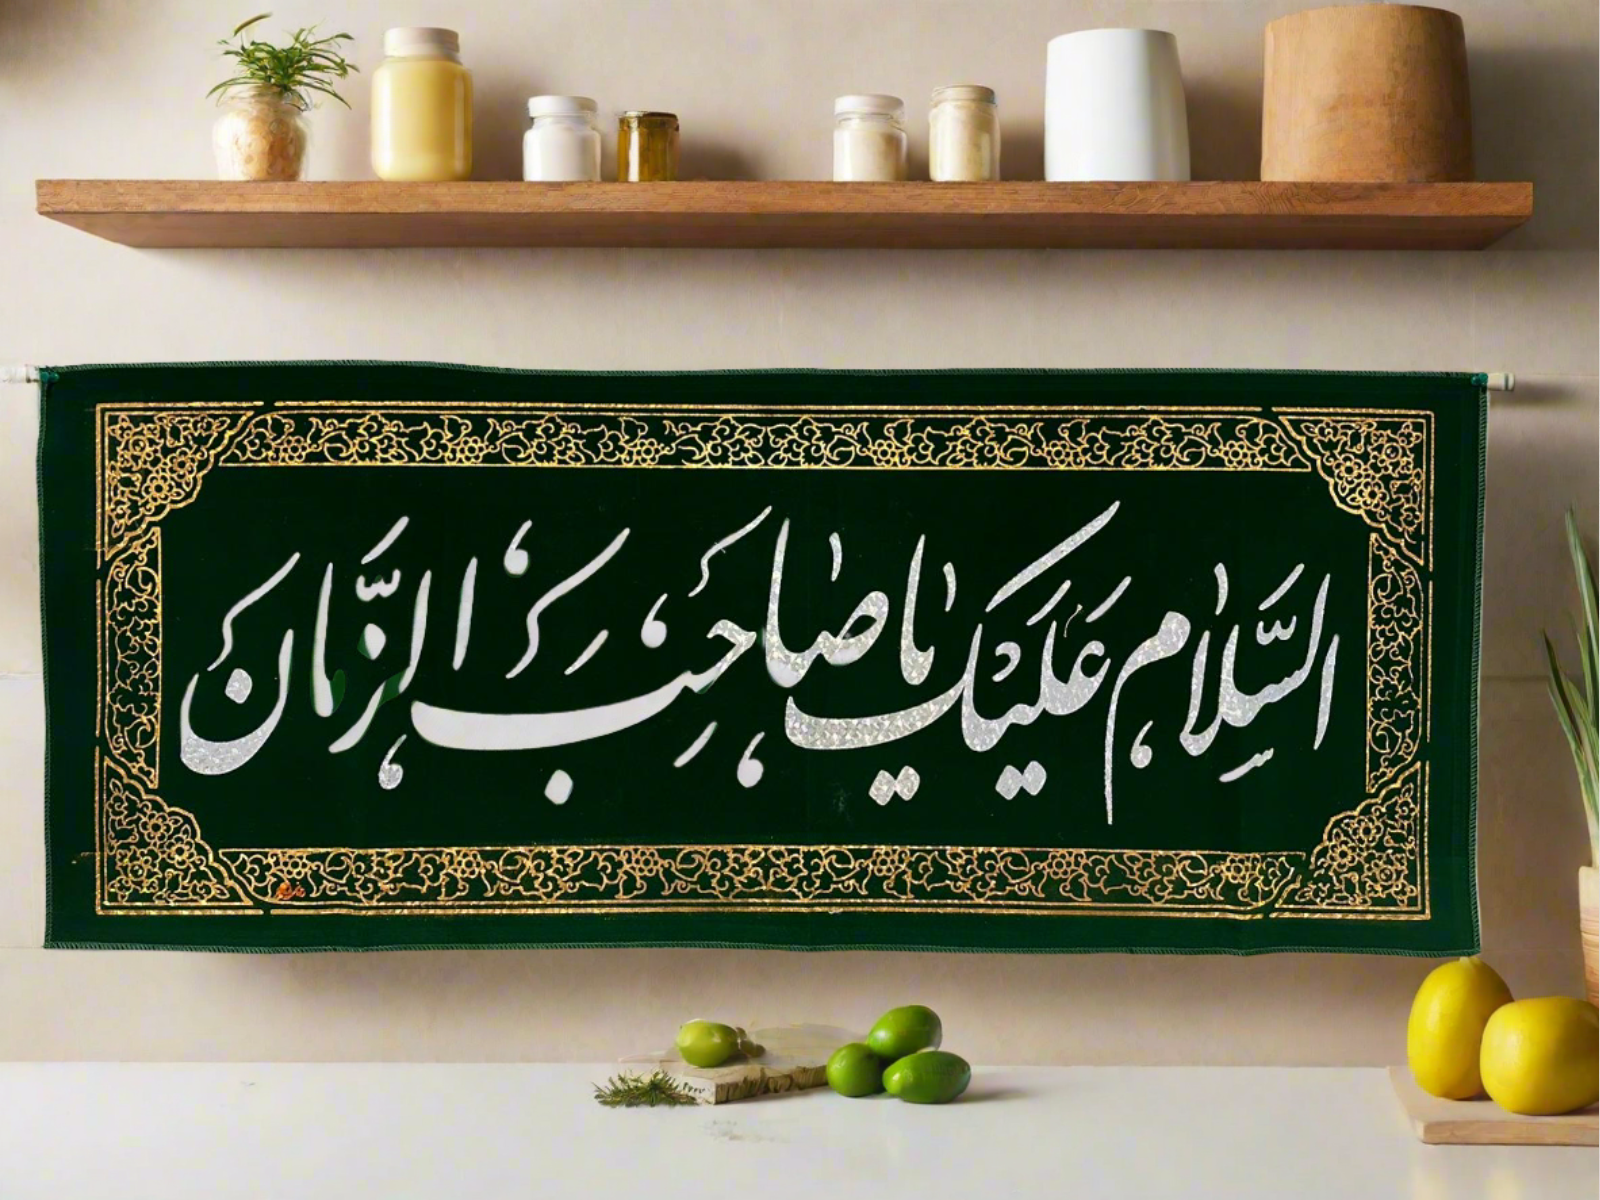 السَّلامُ عَلَیْکَ یا صاحِبَ الزَّمان